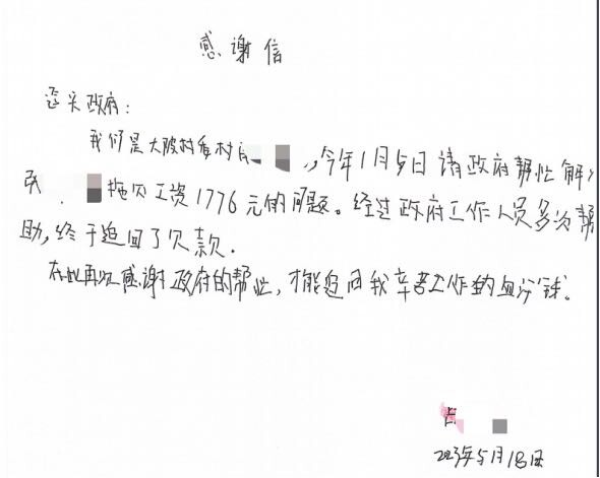 感谢信
迳头政府：
我们是大陂村委村 ，今年1月5日请政府帮忙解
拖欠工资1776元的问题。经过政府工作人员多次帮
助，终于追回了欠款.
在此再次感谢政府的帮忙，才能追回我辛苦工作的血汗钱。
2023年5月18日